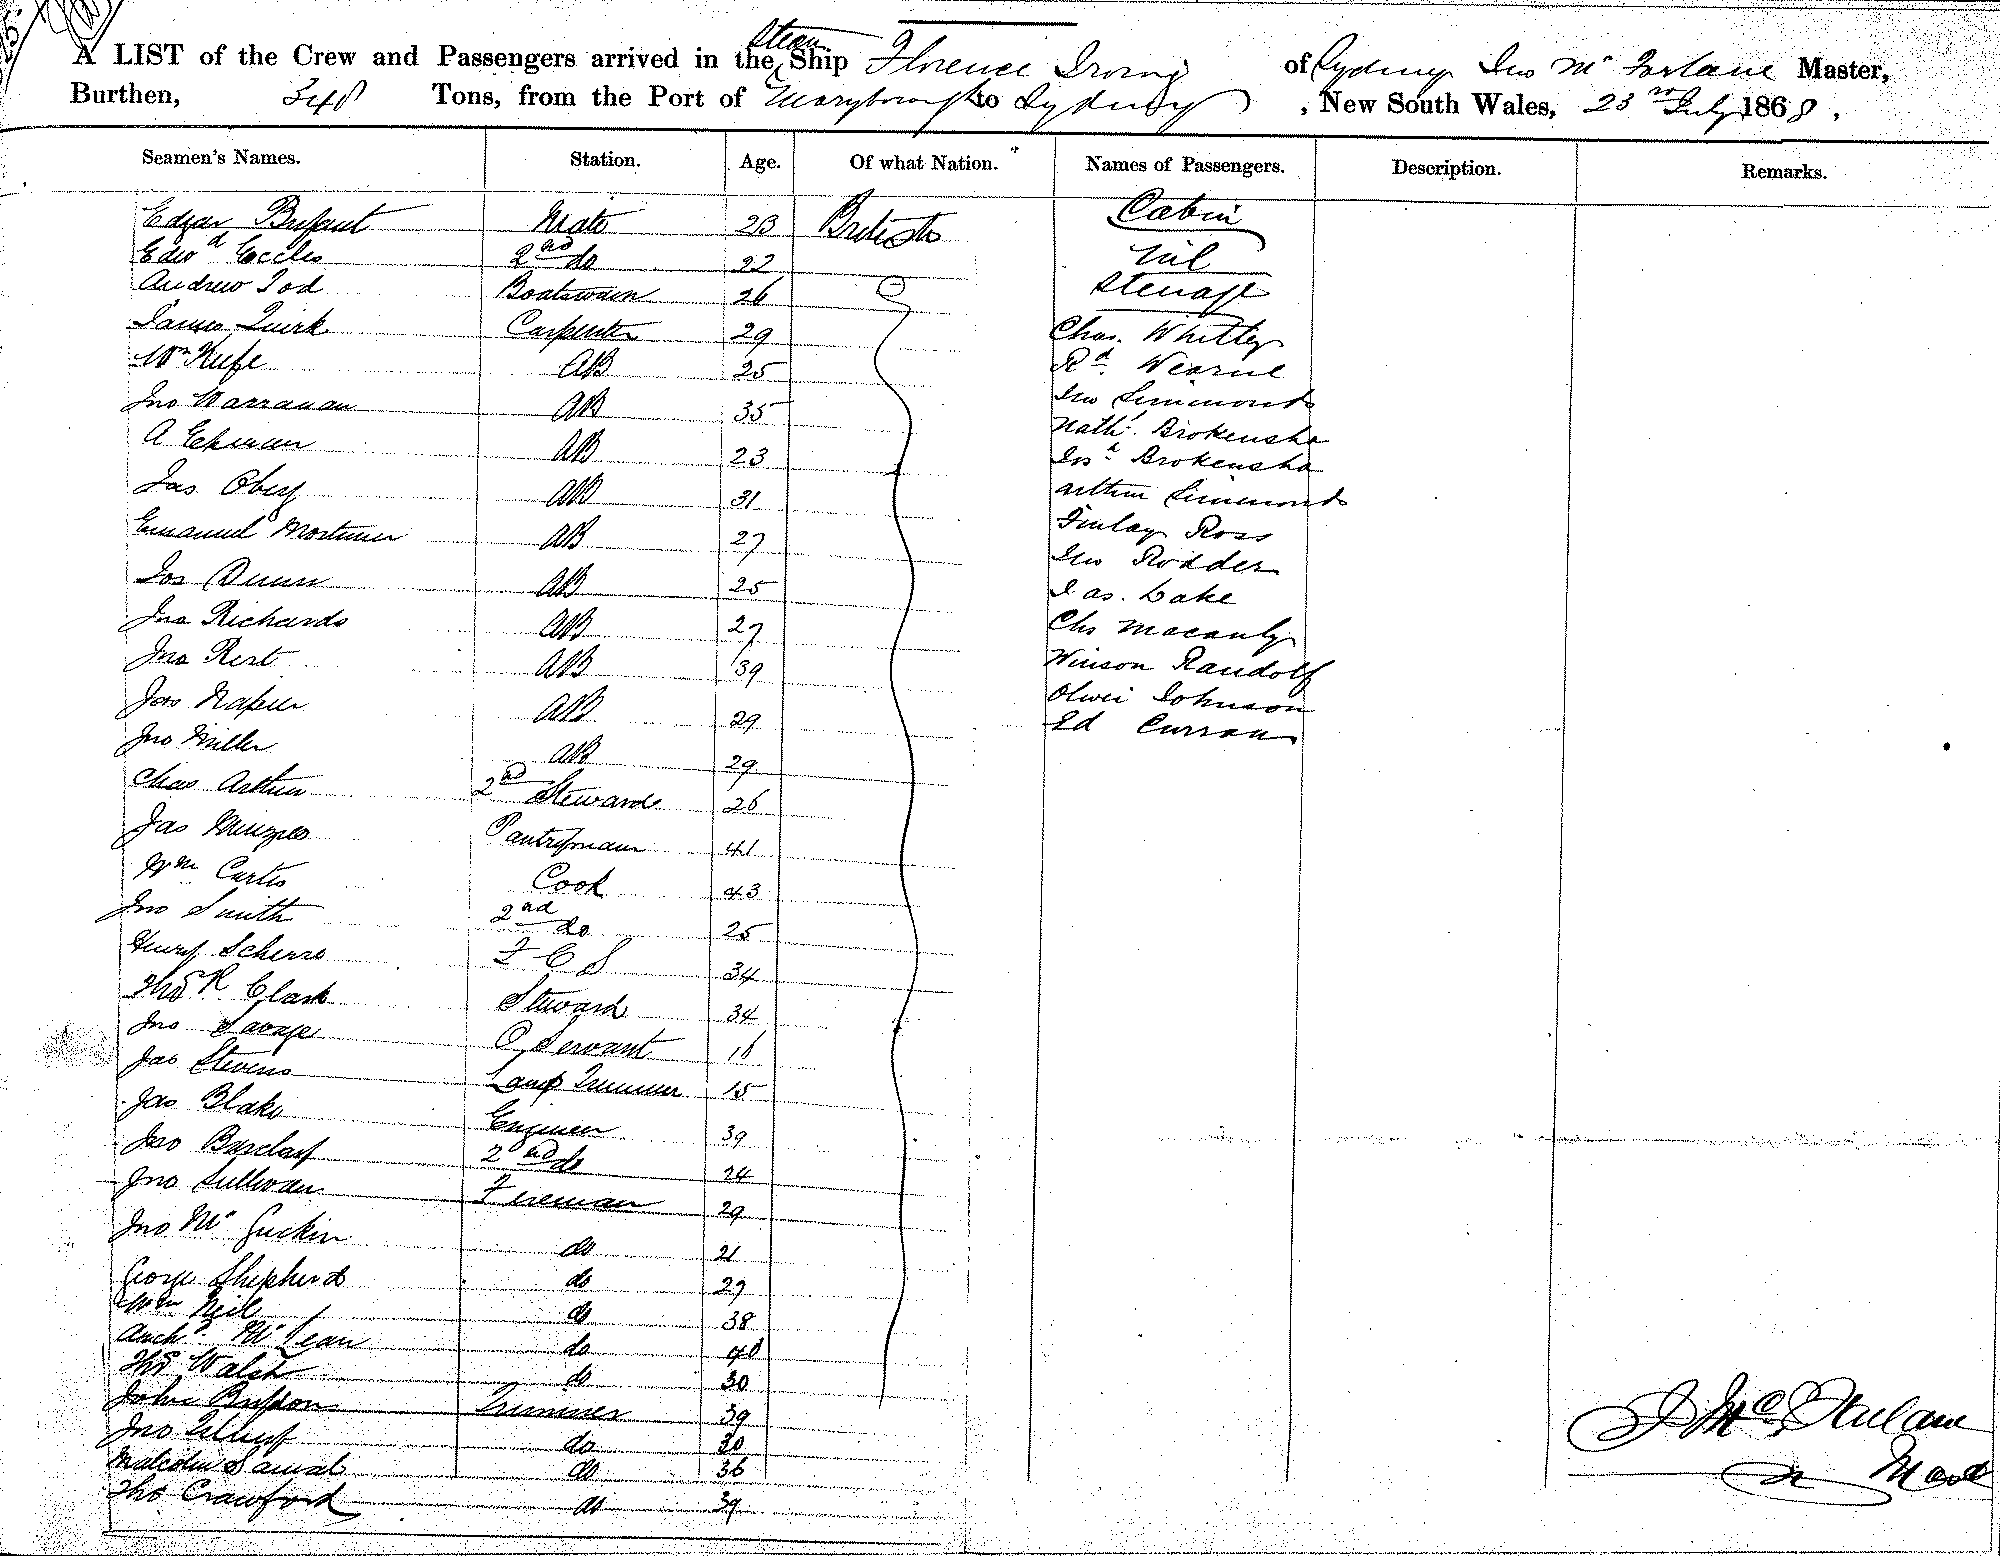 A LIST of the Crew and Passengers arrived in the Steam Ship Florence Irving of Sydney Jno McFarlane Master,
Burthen, 348 Tons, from the Port of Maryborough to Sydney, New South Wales, 23rd July 1868.
Seamen's Names. Station. Age. Of what Nation. Names of Passengers. Description. Remarks.
Edgar Mate 23 British Cabin
Edwd Eccles 2nd do 22 Nil
Andrew Tod Boatswain 26 Steerage
James Quirk Carpenter 29 Chas. Whitley
Wm Keefe AB 25 Rd. Wearne
Jno Warranan AB 35 Jno Simmonds
A Ekman AB 23 Nathl. Brokensha
Jas Obey AB 31 Josh Brokensha
Emanuel Mortimer AB 27 Arthur Simmonds
Jos Dunn AB 25 Finlay Ross
Jno Richards AB 27 Jno Rodder
Jno Rest AB 39 Jas. Lake
Jas Napier AB 29 Chs Macauly
Jno Miller AB 29 Winson Randolf
Chas Arthur 2nd Steward 26 Oliver Johnson
Jas Menzies Pantryman 41 Ed Curran
Wm Curtis Cook 43
Jno Smith 2nd do 25
Henry Scherro F C S 34
Thos R Clark Steward 34
Jno Savage O Servant 16
Jas Stevens Lamp Trimmer 15
Jas Blake Engineer 39
Jno Barclay 2nd do 24
Jno Sullivan Fireman 29
Jno Mc Guckin do 21
George Shepherd do 27
Wm Neil do 38
Archd. McLean do 40
Thos Walsh do 30
John Trimmer 39
Jno do 30
Malcolm do 36
Thos Crawford do 39
J McFarlane
Mast